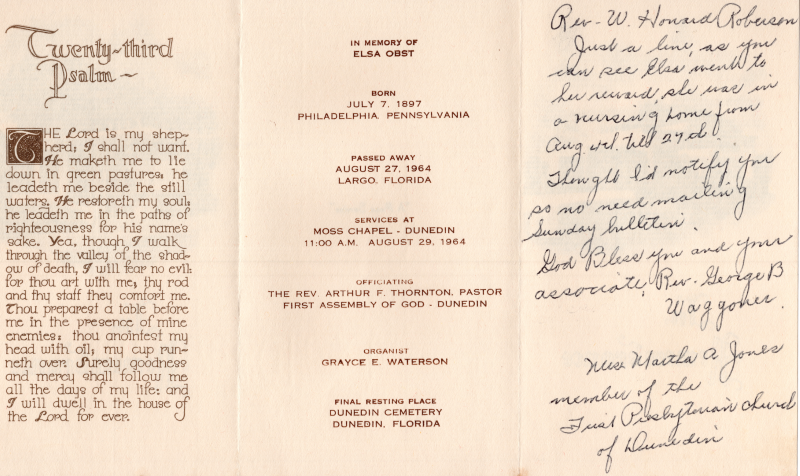 Twenty-third
Psalm~
THE Lord is my shep-
herd; I shall not want.
He maketh me to lie
down in green pastures: he
leadeth me beside the still
waters. He restoreth my soul:
he leadeth me in the paths of
righteousness for his name's
sake. Yea, though I walk
through the valley of the shad-
ow of death, I will fear no evil:
for thou art with me; thy rod
and thy staff they comfort me.
Thou preparest a table before
me in the presence of mine
enemies: thou anointest my
head with oil; my cup run-
neth over. Surely goodness
and mercy shall follow me
all the days of my life: and
I will dwell in the house of
the Lord for ever.
IN MEMORY OF
ELSA OBST
BORN
JULY 7, 1897
PHILADELPHIA, PENNSYLVANIA
PASSED AWAY
AUGUST 27, 1964
LARGO, FLORIDA
SERVICES AT
MOSS CHAPEL - DUNEDIN
11:00 A.M. AUGUST 29, 1964
OFFICIATING
THE REV. ARTHUR F. THORNTON, PASTOR
FIRST ASSEMBLY OF GOD - DUNEDIN
ORGANIST
GRAYCE E. WATERSON
FINAL RESTING PLACE
DUNEDIN CEMETERY
DUNEDIN, FLORIDA
Rev. W. Honard Roberson
Just a line, as you
can see Elsa went to
her reward, she was in
a nursing home from
Aug till 27d.
Thought I'd notify you
so no need mailing
Sunday bulletin.
God Bless you and your
associate, Rev. George B
Waggoner.
Miss Martha A Jones
member of the
First Presbyterian church
of Dunedin